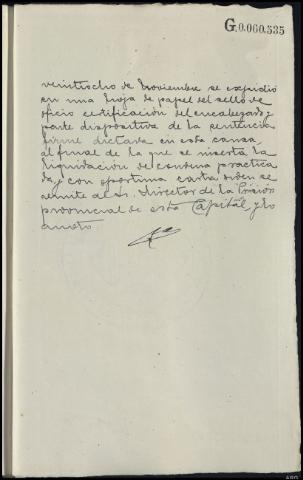 G.0.060.535
veintiocho de Noviembre se expidió
en una hoja de papel del sello de
oficio certificación del encabezado y
parte dispositiva de la sentencia
firme dictada en esta causa,
al final de la que se inserta la
liquidación del condena practica
da, y con oportuna carta orden se
remite al Sr. Director de la Prisión
provincial de esta Capital, y lo
anoto.